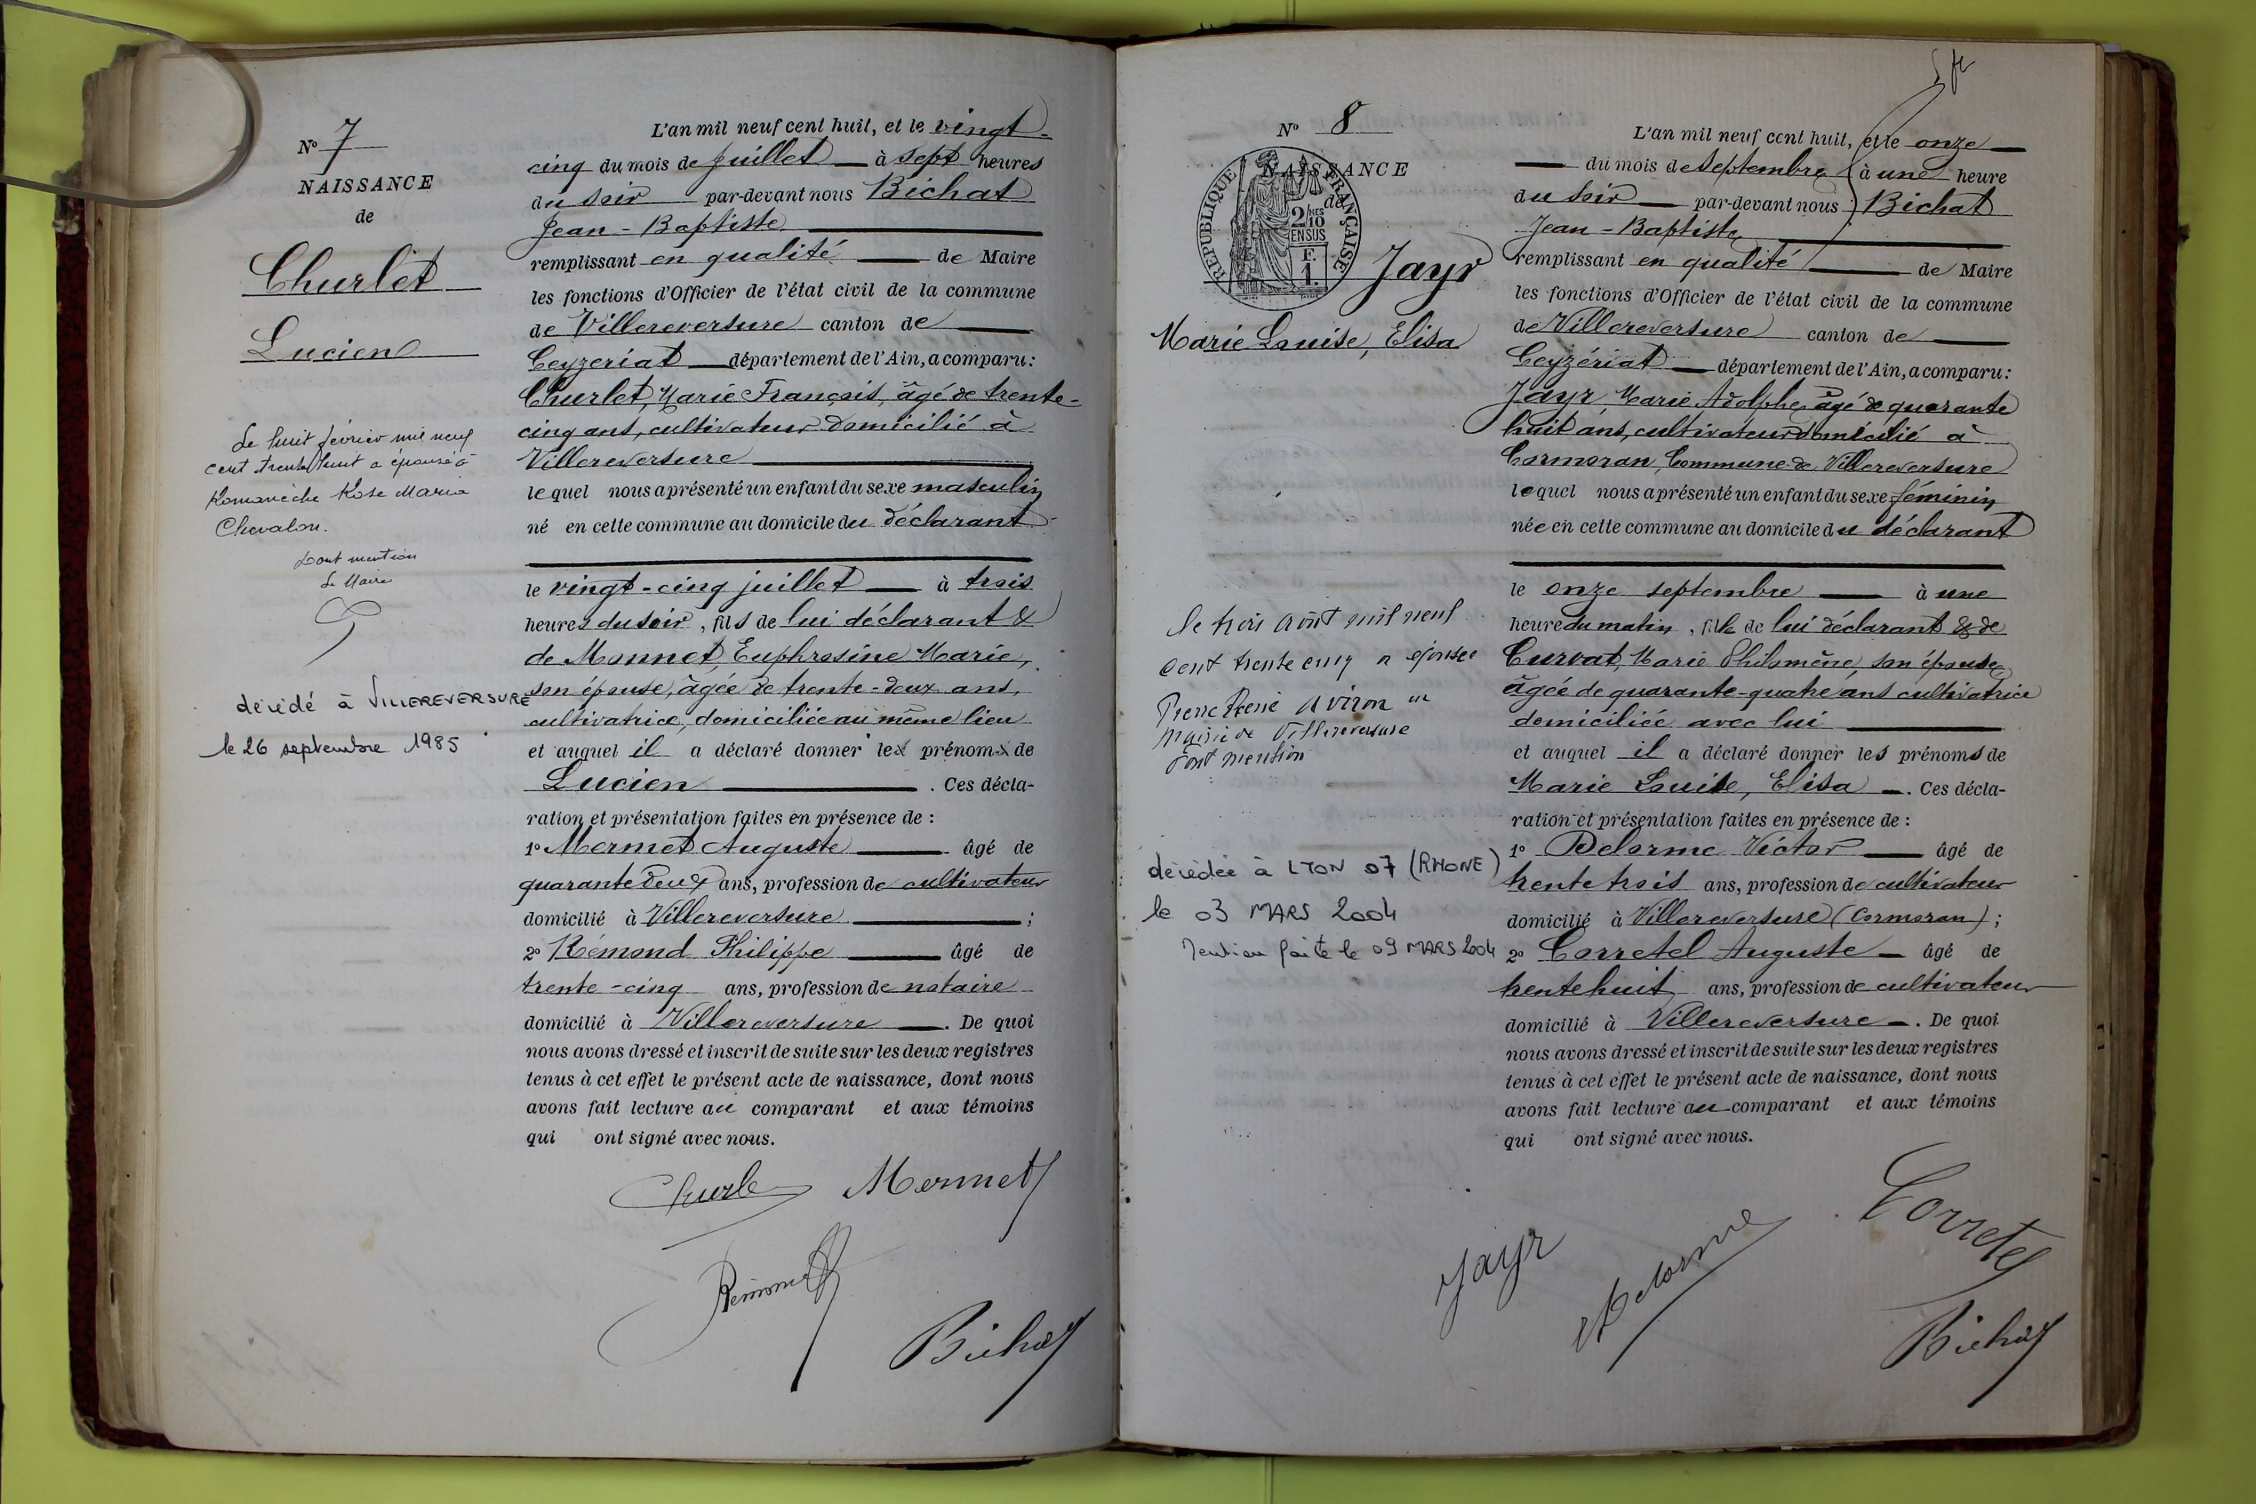 N° 7
NAISSANCE
de
Churlet
Lucien
Le huit février mil neuf
cent trente huit a épousé à
Romanèche Rose Maria
Chevalon.
Dont mention
Le Maire
décédé à VILLEREVERSURE
le 26 septembre 1985
L'an mil neuf cent huit, et le vingt-
cinq du mois de juillet — à sept heures
du soir par-devant nous Bichat
Jean-Baptiste
remplissant en qualité — de Maire
les fonctions d'Officier de l'état civil de la commune
de Villereversure canton de —
Ceyzeriat — département de l'Ain, a comparu:
Churlet, Marie François, âgé de trente-
cinq ans, cultivateur domicilié à
Villereversure
lequel nous a présenté un enfant du sexe masculin
né en cette commune au domicile du déclarant
le vingt-cinq juillet — à trois
heures du soir, fils de lui déclarant &
de Monnet, Euphrosine Marie,
son épouse, âgée de trente-deux ans,
cultivatrice, domiciliée au même lieu
et auquel il a déclaré donner les prénoms de
Lucien — . Ces décla-
ration et présentation faites en présence de :
1° Mermet Auguste — âgé de
quarante deux ans, profession de cultivateur
domicilié à Villereversure — ;
2° Rémond Philippe — âgé de
trente-cinq ans, profession de notaire
domicilié à Villereversure —. De quoi
nous avons dressé et inscrit de suite sur les deux registres
tenus à cet effet le présent acte de naissance, dont nous
avons fait lecture au comparant et aux témoins
qui ont signé avec nous.
Churlet Mermet
Rémond
Bichat
N° 8
NAISSANCE
de
RÉPUBLIQUE FRANÇAISE
2/10
EN SUS
F.
1.
Jayr
Marie Louise, Elisa
le trois août mil neuf
cent trente cinq a épousé
Pierre René Aviron en
mairie de Villereversure
Dont mention
décédée à LYON 07 (RHONE)
le 03 MARS 2004
Mention faite le 09 MARS 2004
L'an mil neuf cent huit, et le onze —
— du mois de septembre à une heure
du soir — par-devant nous Bichat
Jean-Baptiste
remplissant en qualité — de Maire
les fonctions d'Officier de l'état civil de la commune
de Villereversure canton de —
Ceyzériat — département de l'Ain, a comparu:
Jayr, Marie Adolphe, âgé de quarante
huit ans, cultivateur domicilié à
Cormoran, Commune de Villereversure
lequel nous a présenté un enfant du sexe féminin
née en cette commune au domicile du déclarant
le onze septembre — à une
heure du matin, fille de lui déclarant & de
Curvat, Marie Philomène, son épouse
âgée de quarante-quatre ans cultivatrice
domiciliée avec lui
et auquel il a déclaré donner les prénoms de
Marie Louise, Elisa —. Ces décla-
ration et présentation faites en présence de :
1° Delorme Victor — âgé de
trente trois ans, profession de cultivateur
domicilié à Villereversure (Cormoran) ;
2° Corretel Auguste — âgé de
trente huit ans, profession de cultivateur
domicilié à Villereversure —. De quoi
nous avons dressé et inscrit de suite sur les deux registres
tenus à cet effet le présent acte de naissance, dont nous
avons fait lecture au comparant et aux témoins
qui ont signé avec nous.
Corretel
Jayr Delorme
Bichat